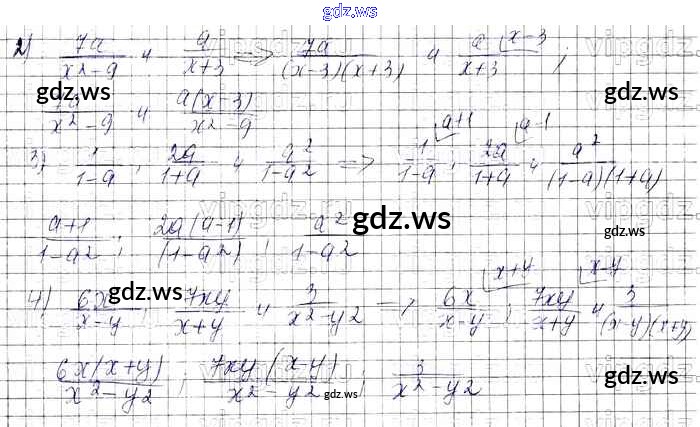 gdz.ws
2) 7a/(x²-9) и a/(x+3) => 7a/((x-3)(x+3)) и a/(x+3) (x-3;
gdz.ws gdz.ws
7a/(x²-9) и a(x-3)/(x²-9)
3) 1/(1-a); 2a/(1+a) и a²/(1-a²) => 1/(1-a) (a+1; 2a/(1+a) (a-1 и a²/((1-a)(1+a))
(a+1)/(1-a²); 2a(a-1)/(1-a²); a²/(1-a²)
gdz.ws gdz.ws
4) 6x/(x-y); 7xy/(x+y) и 3/(x²-y²) => 6x/(x-y) (x+y; 7xy/(x+y) (x-y и 3/((x-y)(x+y))
gdz.ws gdz.ws
6x(x+y)/(x²-y²); 7xy(x-y)/(x²-y²); 3/(x²-y²)
gdz.ws gdz.ws